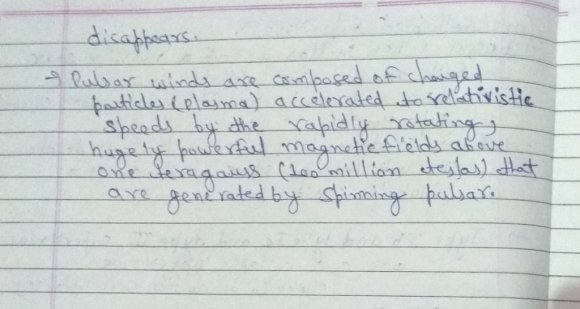 disappears.
→ Pulsar winds are composed of charged
particles (plasma) accelerated to relativistic
speeds by the rapidly rotating,
hugely powerful magnetic fields above
one teragauss (100 million teslas) that
are generated by spinning pulsar.